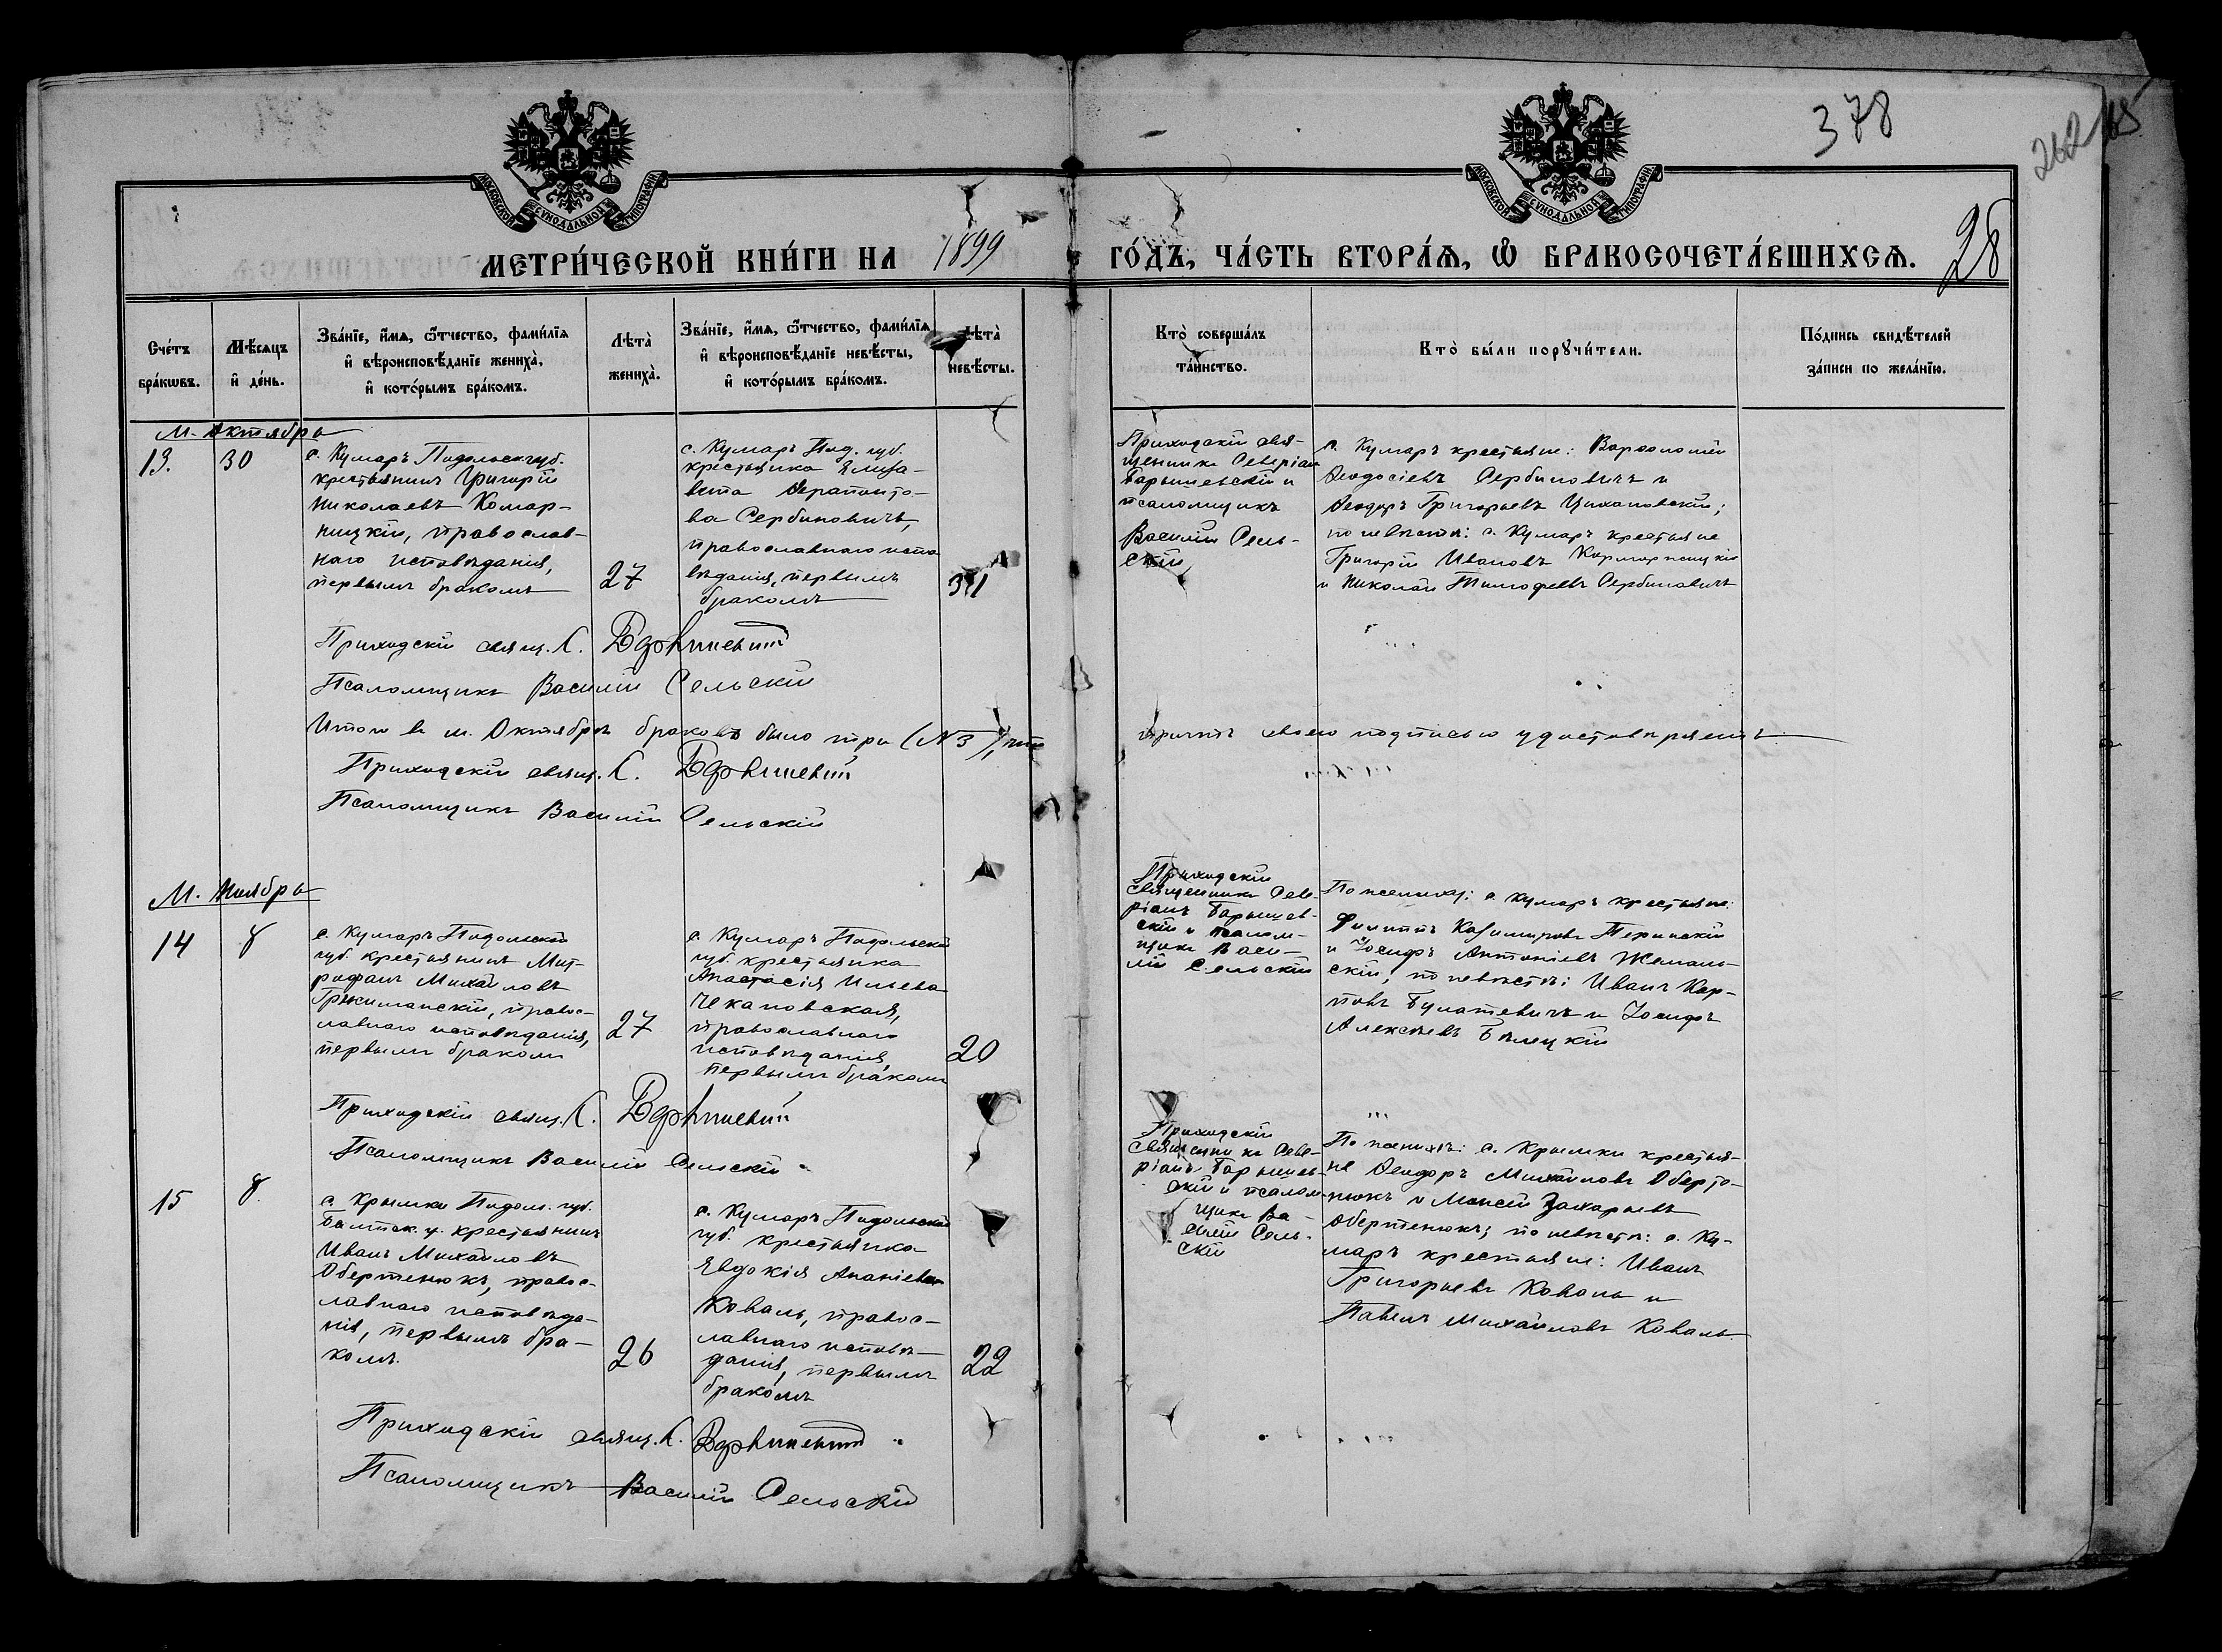 378
262
28
МОСКОВСКОЙ СѴНОДАЛЬНОЙ ТИПОГРАФІИ
МОСКОВСКОЙ СѴНОДАЛЬНОЙ ТИПОГРАФІИ
МЕТРИ́ЧЕСКОЙ КНИ́ГИ НА 1899 ГО́ДЪ, ЧА́СТЬ ВТОРА́Ѧ, Ѡ҆ БРАКОСОЧЕТА́ВШИХСѦ.
Сче́тъ
бра́кѡвъ.
Мѣ́сѧцъ
и҆ де́нь.
Зва́нїе, и҆́мѧ, ѻ҆́тчество, фами́лїѧ
и҆ вѣроисповѣ́данїе жениха̀,
и҆ кото́рымъ бра́комъ.
Лѣта̀
жениха̀.
Зва́нїе, и҆́мѧ, ѻ҆́тчество, фами́лїѧ
и҆ вѣроисповѣ́данїе невѣ́сты,
и҆ кото́рымъ бра́комъ.
Лѣта̀
невѣ́сты.
Кто̀ соверша́лъ
та́инство.
Кто̀ бы́ли порꙋчи́тели.
По́дпись свидѣ́телей
за́писи по жела́нїю.
М. Октябрь
13.
30
с. Кумаръ Подольск. губ.
крестьянинъ Григорій
Николаевъ Комар-
ницкій, православ-
наго исповѣданія,
первымъ бракомъ
27
с. Кумаръ Под. губ.
крестьянка Елиза-
вета Ѳерапонто-
ва Сербиновичъ,
православнаго испо
вѣданія, первымъ
бракомъ
31
Приходскій свя-
щенникъ Северіан
Барышевскій и
псаломщикъ
Василій Сель-
скій
с. Кумаръ крестьяне: Варѳоломій
Ѳеодосіевъ Сербиновичъ и
Ѳеодоръ Григорьевъ Цихановскій;
по невѣстѣ: с. Кумаръ крестьяне
Григорій Ивановъ Комарницкій
и Николай Тимофеевъ Сербиновичъ
Приходскій свящ. С. Барышевскій
Псаломщикъ Василій Сельскій
Итого въ м. Октябрѣ браковъ было три (№ 3), что
причтъ своею подписью удостовѣряетъ
Приходскій свящ. С. Барышевскій
Псаломщикъ Василій Сельскій
М. Ноябрь
14
8
с. Кумаръ Подольской
губ. крестьянинъ Мит-
рофанъ Михайловъ
Гржиманскій, правос-
лавнаго исповѣданія,
первымъ бракомъ
27
с. Кумаръ Подольской
губ. крестьянка
Анастасія Ильева
Чекановская,
православнаго
исповѣданія,
первымъ бракомъ
20
Приходскій
священникъ Севе-
ріанъ Барышев-
скій и псалом-
щикъ Васи-
лій Сельскій
По жениху: с. Кумаръ крестьяне:
Филиппъ Казимировъ Перинскій
и Іосифъ Антоніевъ Жемаль-
скій; по невѣстѣ: Иванъ Кар-
повъ Булатевичъ и Іосифъ
Алексѣевъ Бѣлецкій
Приходскій свящ. С. Барышевскій
Псаломщикъ Василій Сельскій
15
8.
с. Крымки Подол. губ.
Балтск. у. крестьянинъ
Иванъ Михайловъ
Обертенюкъ, правос-
лавнаго исповѣда-
нія, первымъ бра-
комъ.
26
с. Кумаръ Подольской
губ. крестьянка
Евдокія Ананіева
Коваль, правос-
лавнаго исповѣ-
данія, первымъ
бракомъ
22
Приходскій
священникъ Севе-
ріанъ Барышев-
скій и псалом-
щикъ Ва-
силій Сель-
скій
По жениху: с. Крымки крестья-
не Ѳеодоръ Михайловъ Оберте-
нюкъ и Моисей Захарьевъ
Обертенюкъ; по невѣстѣ: с. Ку-
маръ крестьяне: Иванъ
Григорьевъ Коваль и
Павелъ Михайловъ Коваль.
Приходскій свящ. С. Барышевскій
Псаломщикъ Василій Сельскій